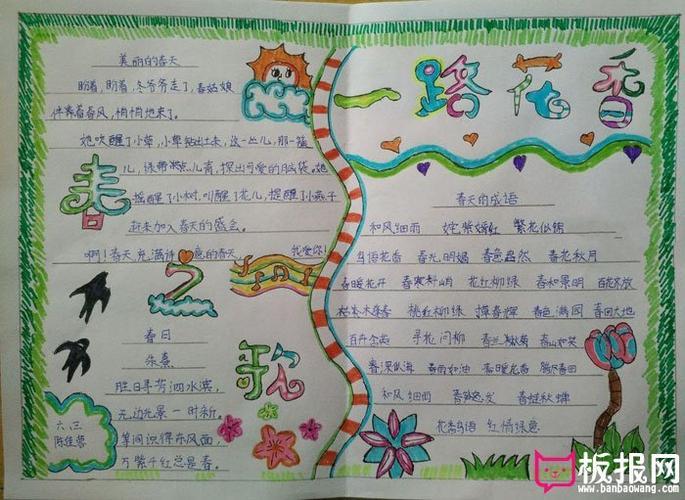 美丽的春天
盼着,盼着,冬爷爷走了,春姑娘
伴着春风,悄悄地来了。
她吹醒了小草,小草钻出土来,这一丛儿,那一
儿,绿带点儿青,探出可爱的脑袋。她
摇醒了小树,叫醒了花儿,提醒了小燕子
赶来加入春天的盛会。
啊!春天,充满诗意的春天,我爱你!
春
之
歌
春日
朱熹
胜日寻芳泗水滨,
无边光景一时新。
等闲识得东风面,
万紫千红总是春。
六、三
一路花香
春天的成语
和风细雨 姹紫嫣红 繁花似锦
鸟语花香 春光明媚 春色盎然 春花秋月
春暖花开 春寒料峭 花红柳绿 春和景明 百花齐放
桃红柳绿 春色满园 春回大地
百卉含英 寻花问柳 春兰秋菊 春山如笑
春深似海 春雨如油 春暖花香
和风细雨 春蛙秋蝉
花香鸟语 红情绿意
板报网
www.banbaowang.com